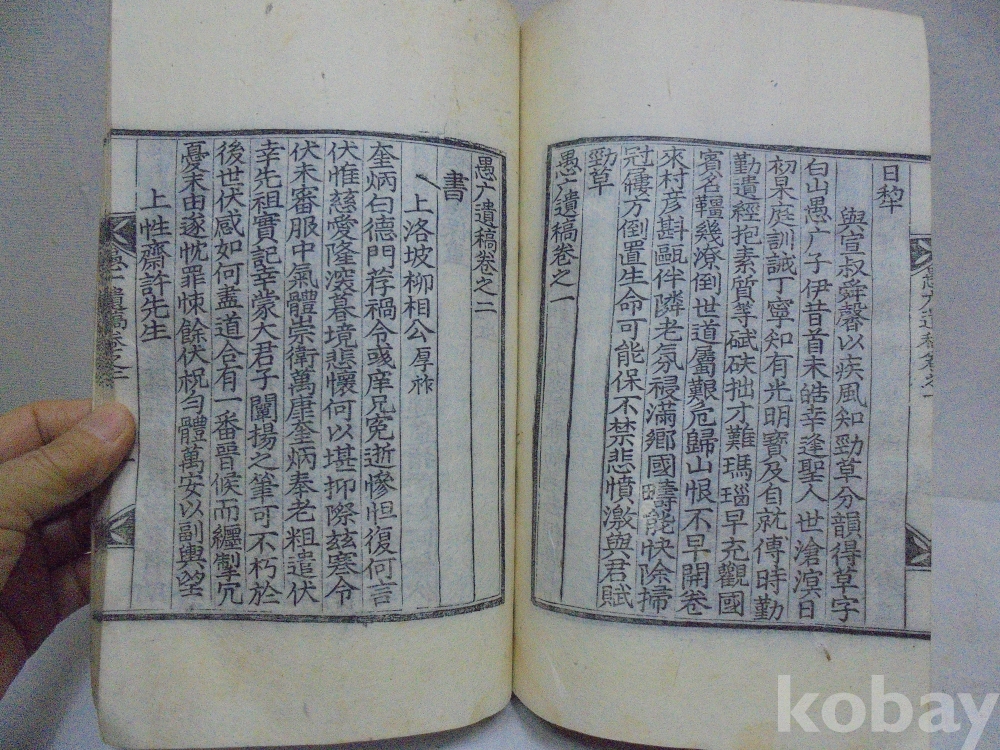 日犂
與宣叔舜馨以疾風知勁草分韻得草字
白山愚广子伊昔首未皓幸逢聖人世滄溟日
初杲庭訓誠丁寧知有光明寶及自就傅時勤
勤遺經抱素質等碔砆拙才難瑪瑙早充觀國
賓名韁幾潦倒世道屬艱危歸山恨不早開卷
來村彦斟甌伴隣老氛祲滿鄉國疇能快除掃
冠屨方倒置生命可能保不禁悲憤激與君賦
勁草
愚广遺稿卷之一
愚广遺稿卷之一
愚广遺稿卷之二
書
上洛坡柳相公厚祚
奎炳白德門荐禍令彧庠兄冤逝慘怛復何言
伏惟慈愛隆深暮境悲懷何以堪抑際玆寒令
伏未審服中氣體崇衛萬庫奎炳奉老粗遣伏
幸先祖實記幸蒙大君子闡揚之筆可不朽於
後世伏感如何盡道合有一番晉候而纏掣冗
憂未由遂忱罪悚餘伏祝匀體萬安以副輿望
上性齋許先生
愚广遺稿卷之二
kobay